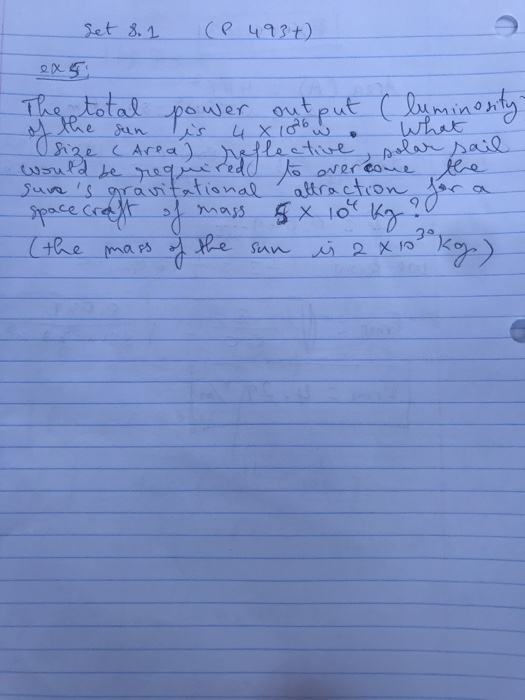 Set 8.1 (P 493+)
ex 5:
The total power output (luminosity
of the sun is 4 × 10²⁶ w. What
size (Area) reflective, solar sail
would be required to overcome the
sun's gravitational attraction for a
spacecraft of mass 5 × 10⁴ kg?
(the mass of the sun is 2 × 10³⁰ kg)